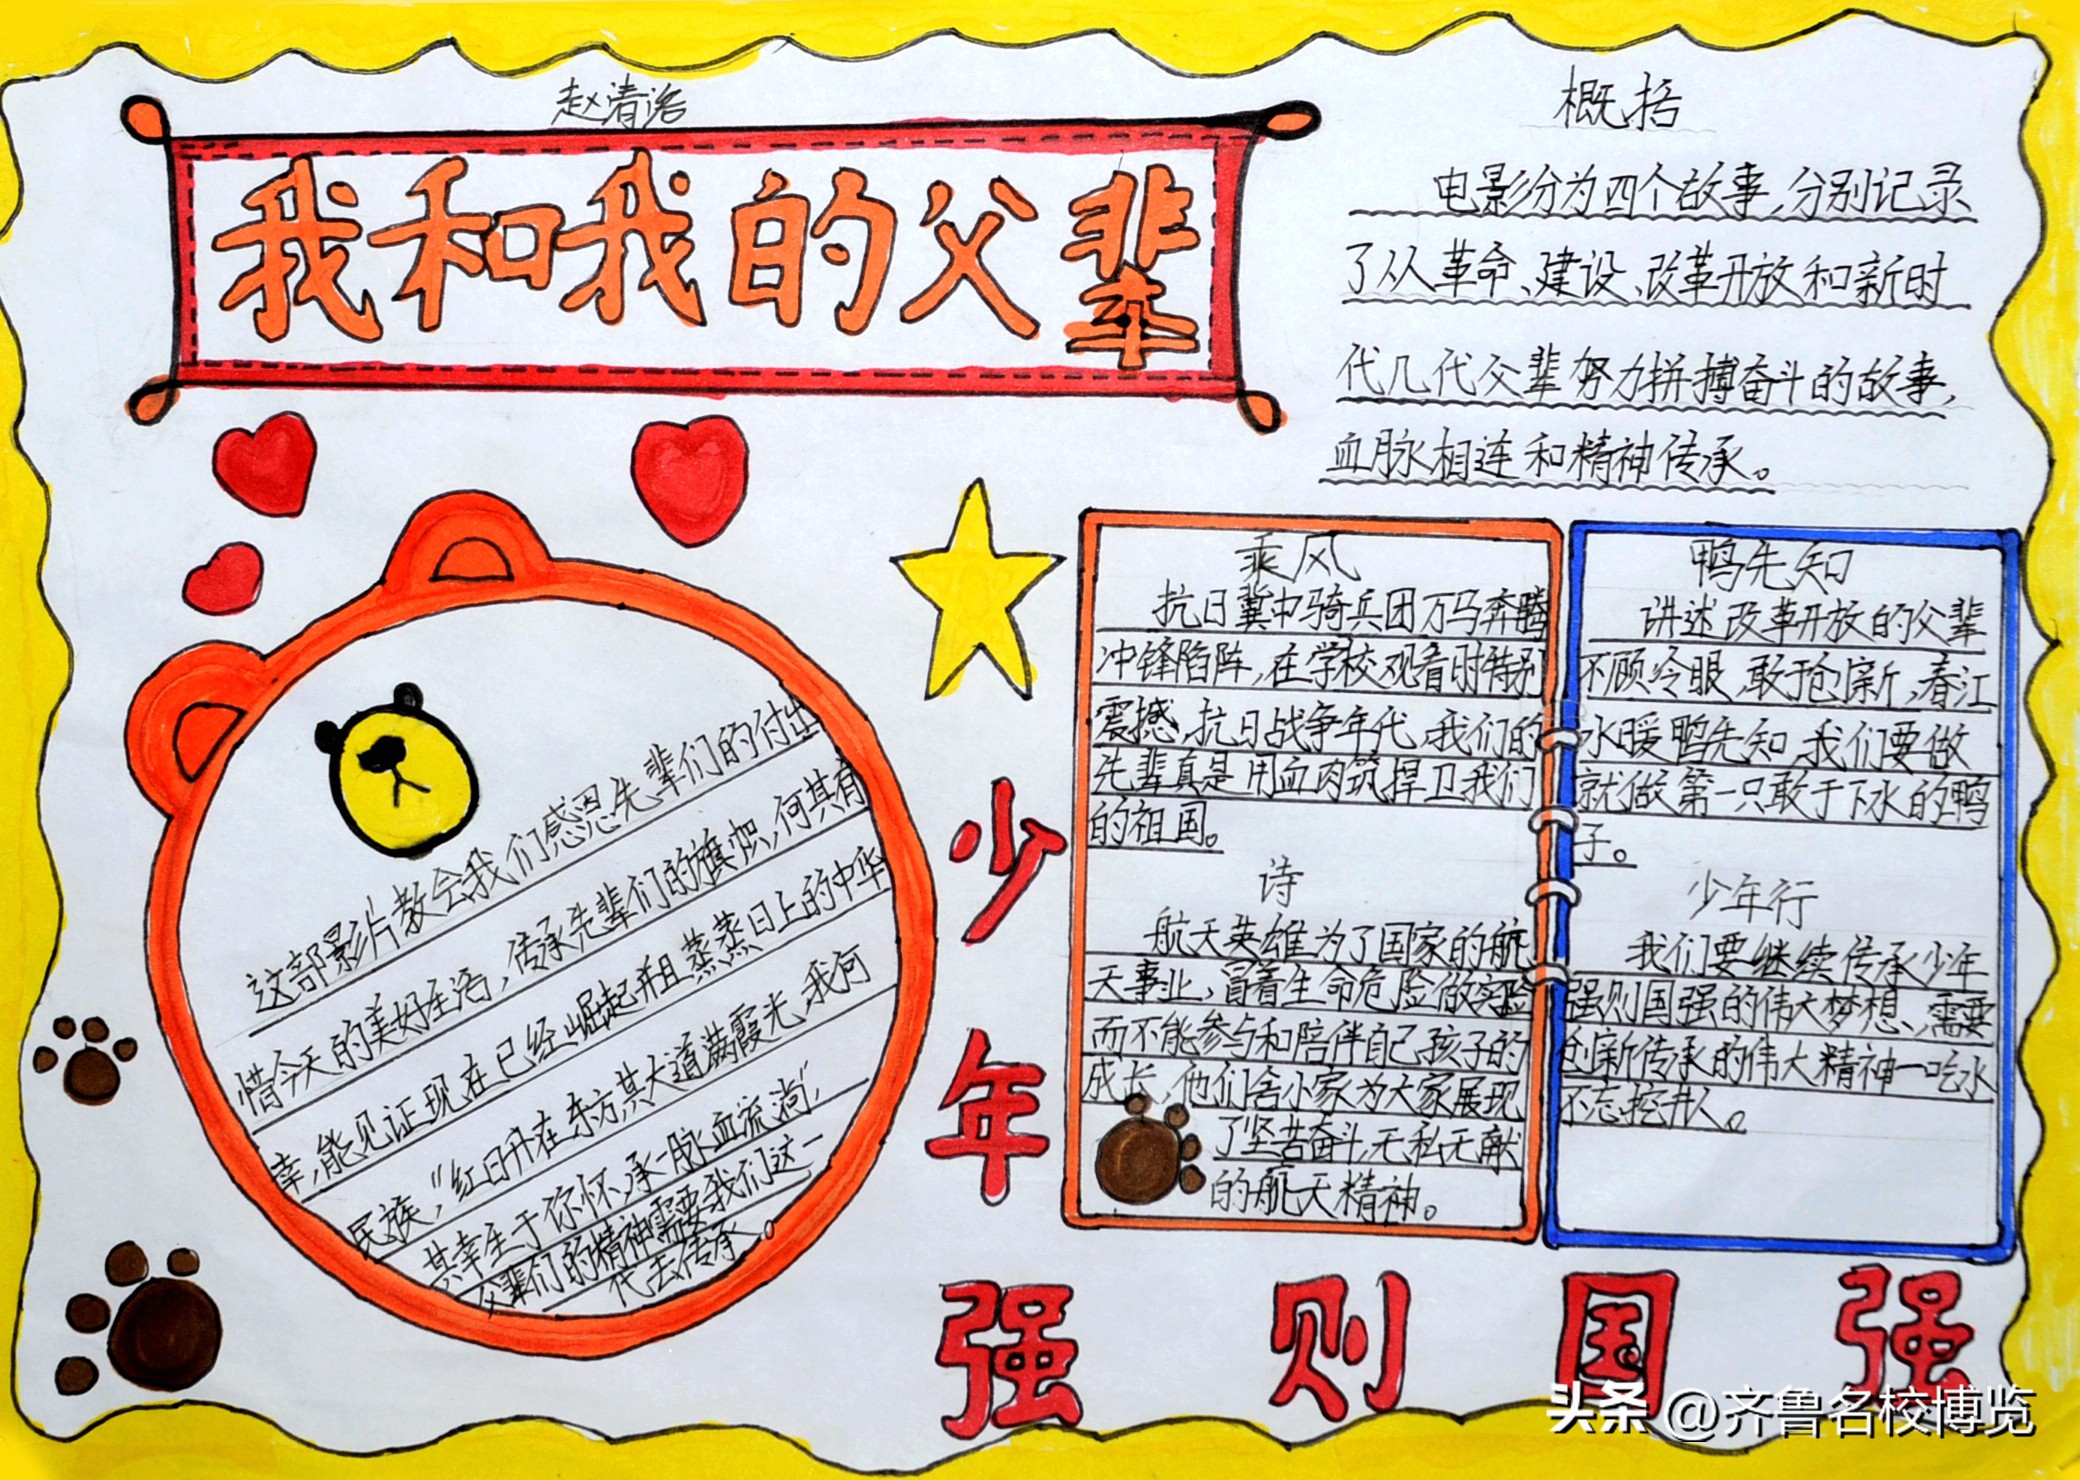 赵清洛
我和我的父辈
概括
电影分为四个故事,分别记录
了从革命、建设、改革开放和新时
代几代父辈努力拼搏奋斗的故事,
血脉相连和精神传承。
这部影片教会我们感恩先辈们的付出
惜今天的美好生活,传承先辈们的旗帜,何其有
幸,能见证现在已经崛起并且蒸蒸日上的中华
民族,“红日升在东方,其大道满霞光,我何
其幸生于你怀,承一脉血流淌”,
父辈们的精神需要我们这一
代去传承。
乘风
抗日冀中骑兵团万马奔腾
冲锋陷阵,在学校观看时特别
震撼,抗日战争年代,我们的
先辈真是用血肉筑捍卫我们
的祖国。
诗
航天英雄为了国家的航
天事业,冒着生命危险做实验
而不能参与和陪伴自己孩子的
成长,他们舍小家为大家展现
了坚苦奋斗,无私无献
的航天精神。
鸭先知
讲述改革开放的父辈
不顾冷眼,敢于创新,春江
水暖鸭先知,我们要做
就做第一只敢于下水的鸭
子。
少年行
我们要继续传承少年
强则国强的伟大梦想,需要
创新传承的伟大精神—吃水
不忘挖井人。
少年
强则国强
头条@齐鲁名校博览